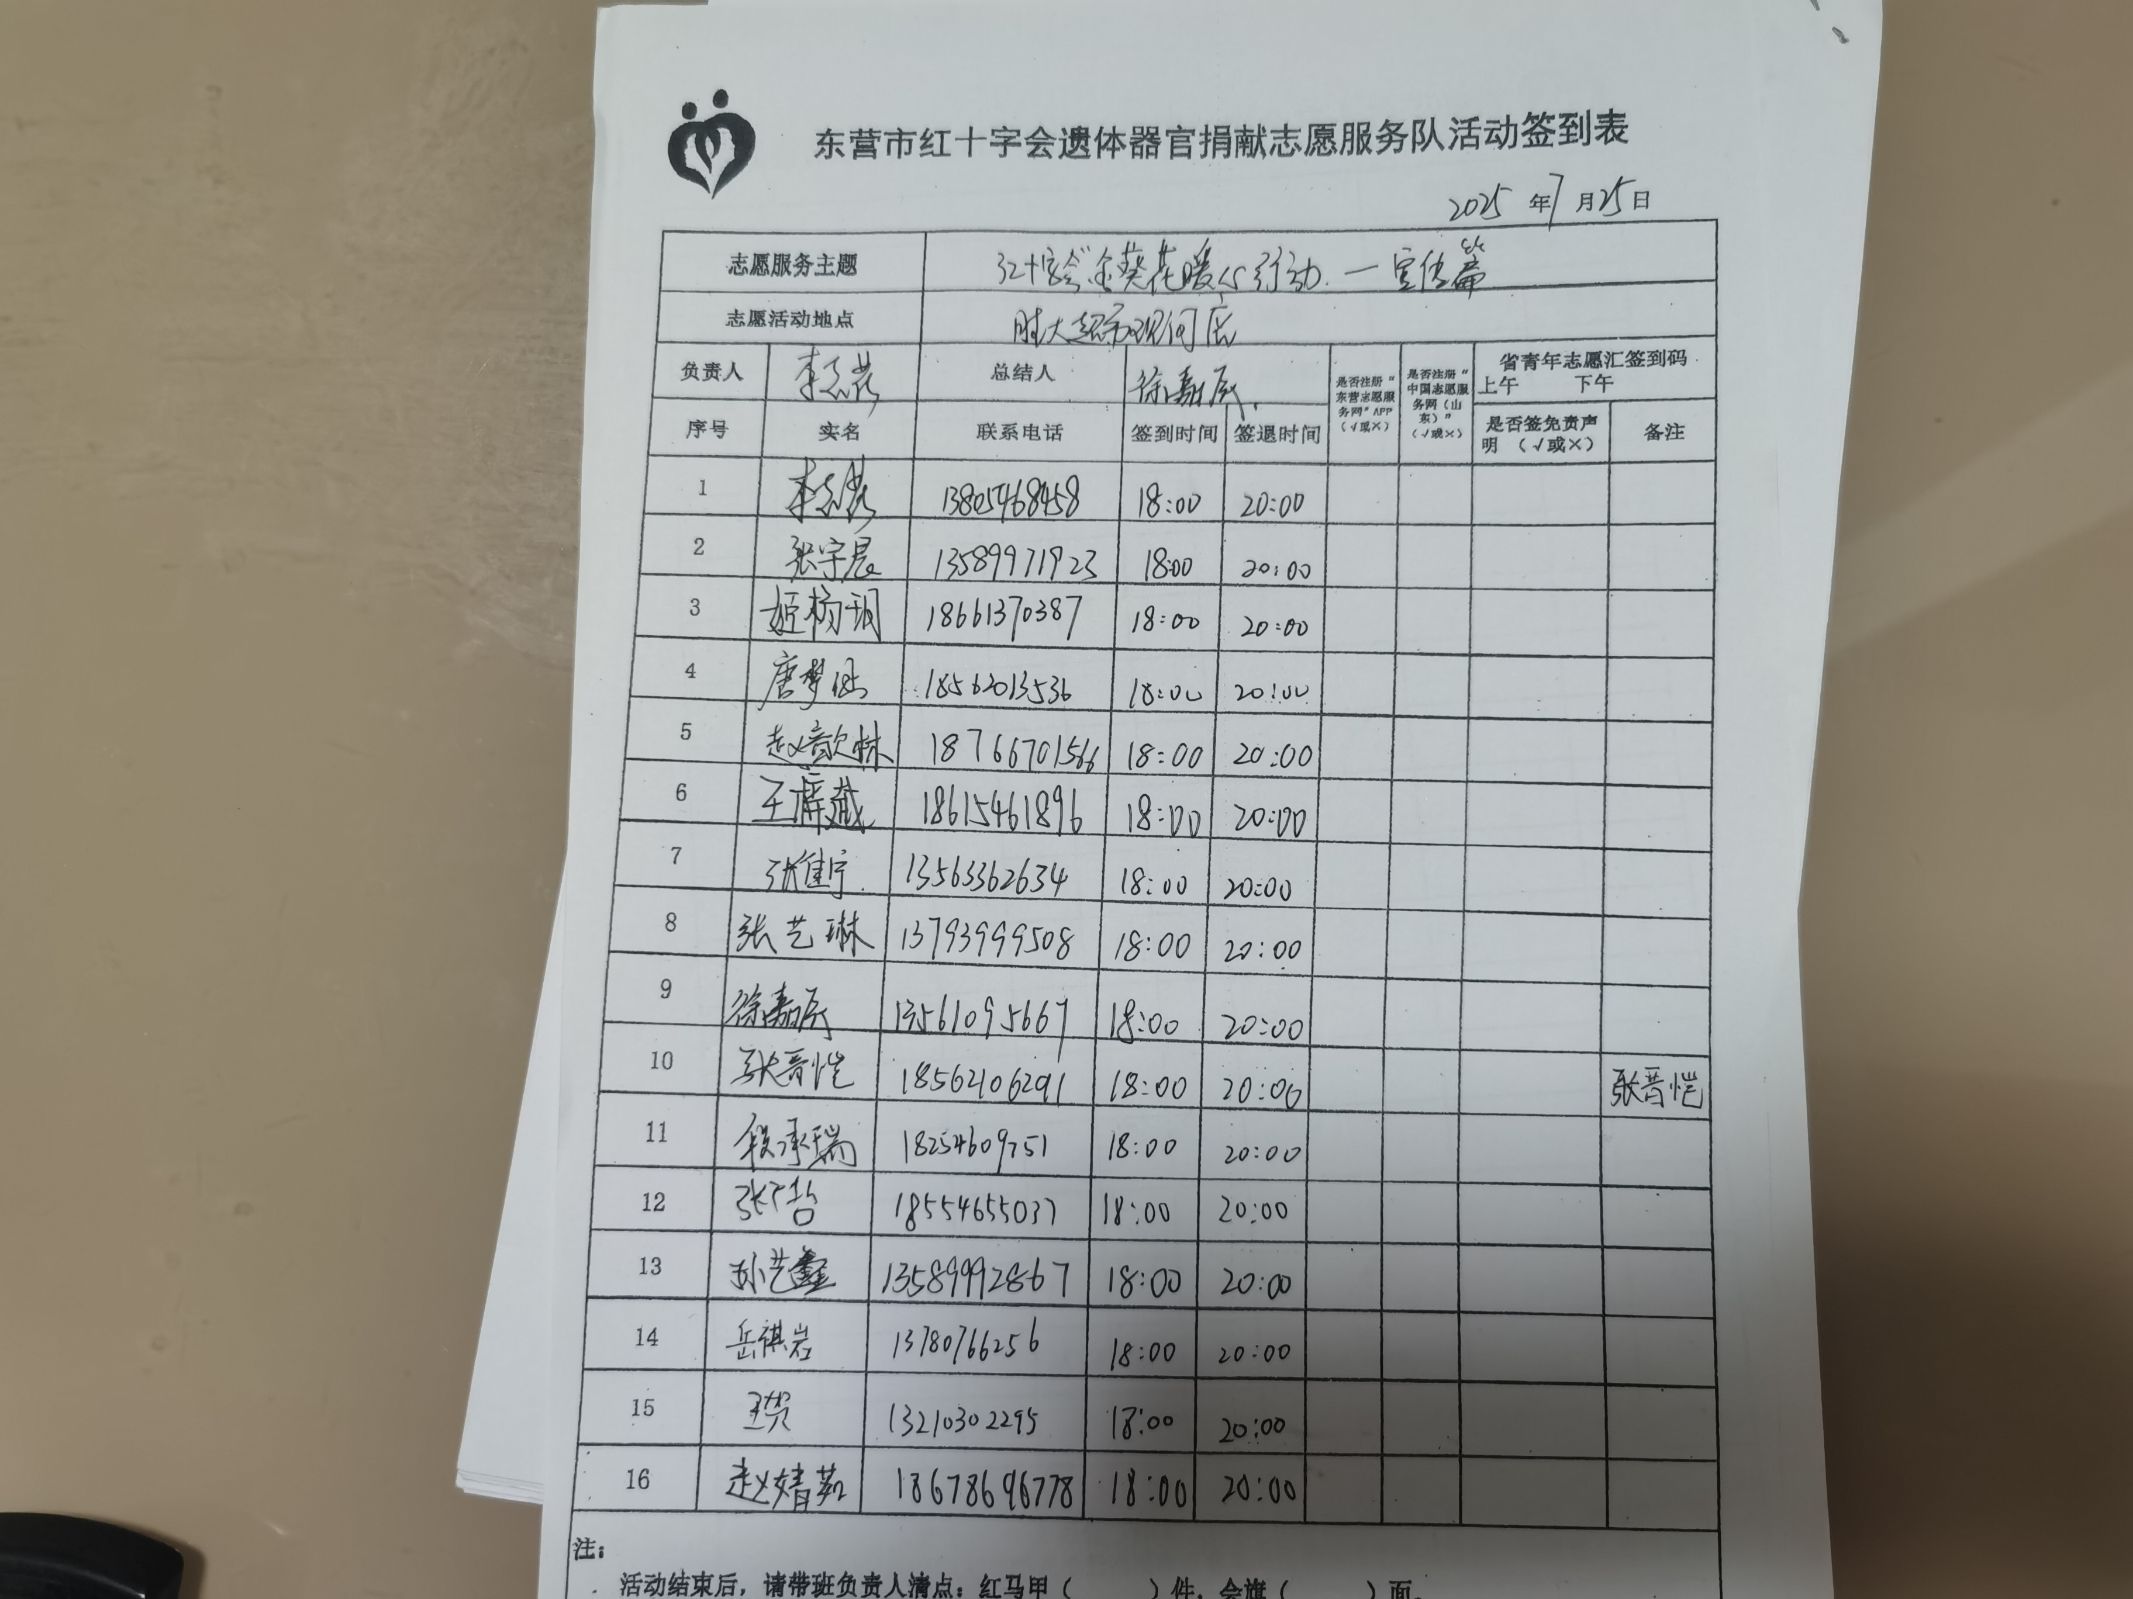 东营市红十字会遗体器官捐献志愿服务队活动签到表
2025 年 7 月 25 日
志愿服务主题 红十字会"金葵花暖心行动 — 宣传篇
志愿活动地点 胜大超市现河店
负责人 总结人 徐嘉辰 是否注册“东营志愿服务网”APP（√或×） 是否注册“中国志愿服务网（山东）”（√或×） 省青年志愿汇签到码 上午 下午
序号 实名 联系电话 签到时间 签退时间 是否签免责声明（√或×） 备注
1 13805468458 18:00 20:00
2 张宇晨 13589971923 18:00 20:00
3 姬杨玥 18661370387 18:00 20:00
4 唐梦 18562013536 18:00 20:00
5 赵歆琳 18766701566 18:00 20:00
6 王 18615461896 18:00 20:00
7 张隹宁 13563362634 18:00 20:00
8 张艺琳 13793999508 18:00 20:00
9 徐嘉辰 13561095667 18:00 20:00
10 张晋恺 18562106291 18:00 20:00 张晋恺
11 段承瑞 18254609751 18:00 20:00
12 18554655037 18:00 20:00
13 孙艺鑫 13589992867 18:00 20:00
14 岳祺岩 13780766256 18:00 20:00
15 王贺 13210302295 18:00 20:00
16 赵婧茹 18678696778 18:00 20:00
注：
活动结束后，请带班负责人清点：红马甲（ ）件，会旗（ ）面。